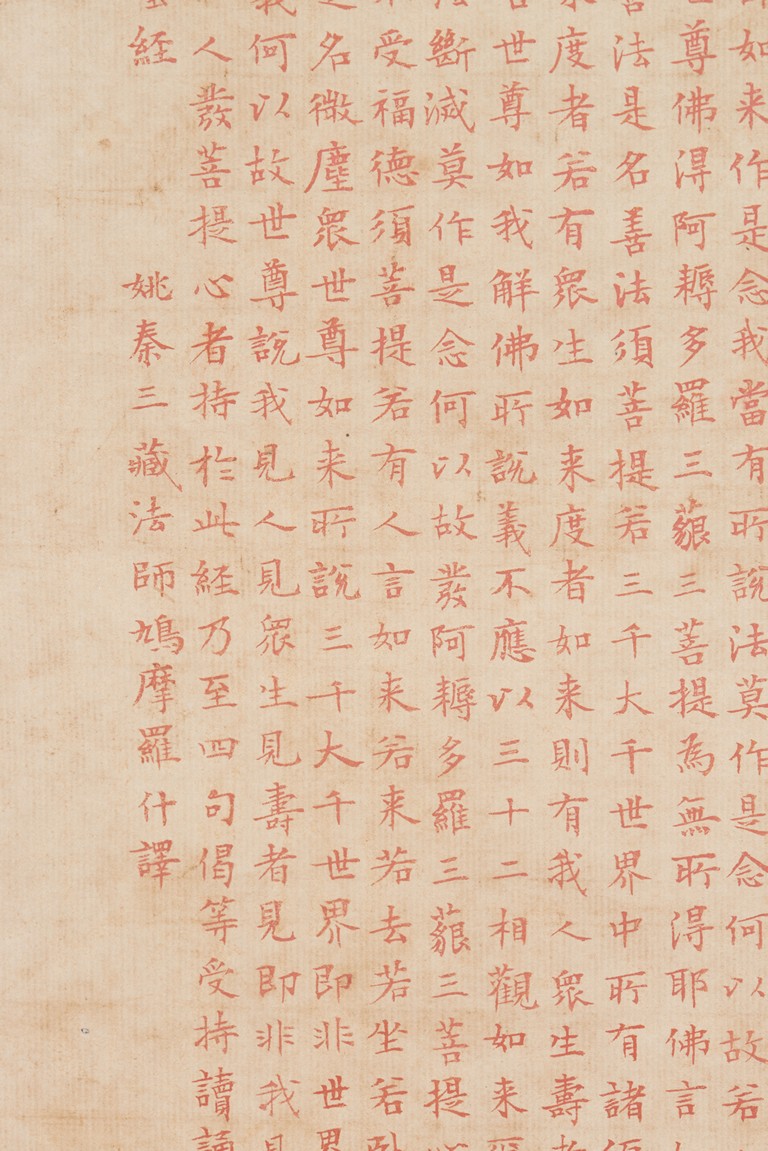 如来作是念我當有所說法莫作是念何以故若
尊佛淂阿耨多羅三藐三菩提為無所得耶佛言
法是名善法須菩提若三千大千世界中所有諸
度者若有衆生如来度者如来則有我人衆生壽
世尊如我解佛所說義不應以三十二相觀如来
斷滅莫作是念何以故發阿耨多羅三藐三菩提
受福德須菩提若有人言如来若来若去若坐若卧
名微塵衆世尊如来所說三千大千世界即非世界
何以故世尊說我見人見衆生見壽者見即非我見
人發菩提心者持於此経乃至四句偈等受持讀誦
経 姚秦三藏法師鳩摩羅什譯